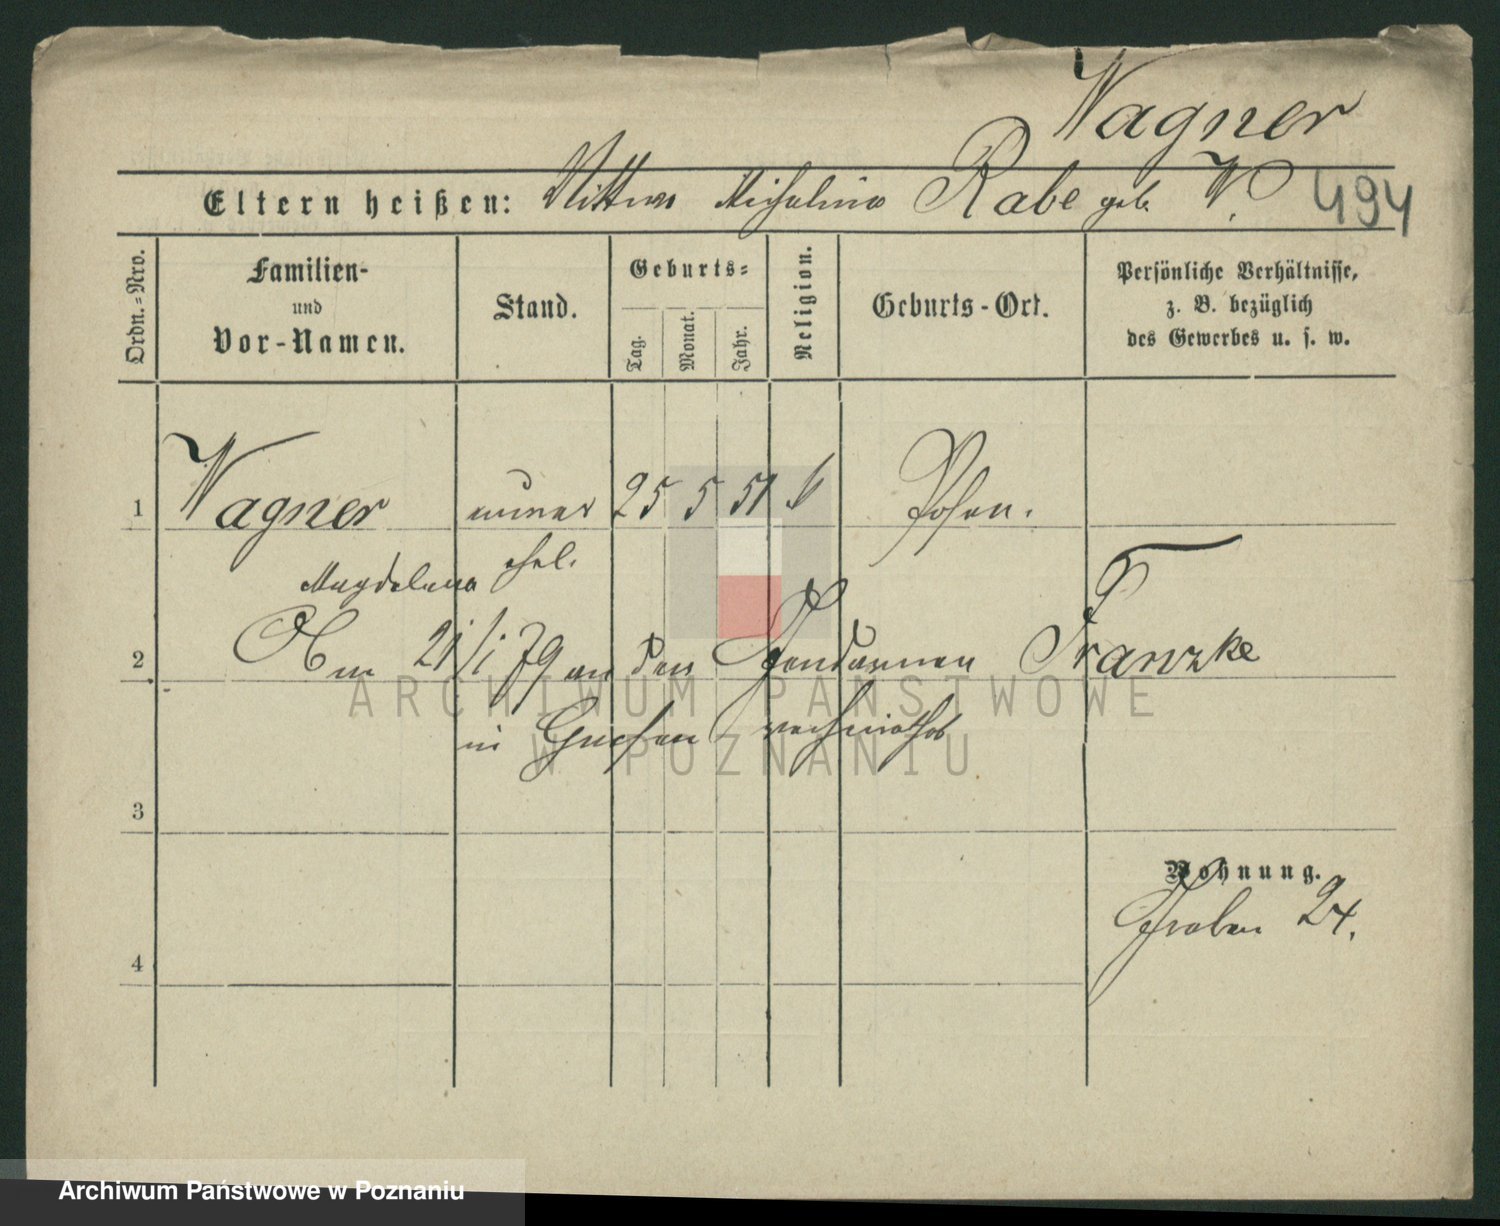 Wagner
Eltern heißen: Wittwe Michalina Rabe geb. W. 494
Ordn.=Nro.
Familien-
und
Vor-Namen.
Stand.
Geburts=
Tag.
Monat.
Jahr.
Religion.
Geburts-Ort.
Persönliche Verhältnisse,
z. B. bezüglich
des Gewerbes u. s. w.
1 Wagner 25 5 51 k Posen.
Magdalena ehel.
2 Am 21/1 79 an den Gendarmen Franzke
in Gnesen verheirathet
3
Wohnung.
Graben 24.
4
ARCHIWUM PAŃSTWOWE
W POZNANIU
Archiwum Państwowe w Poznaniu